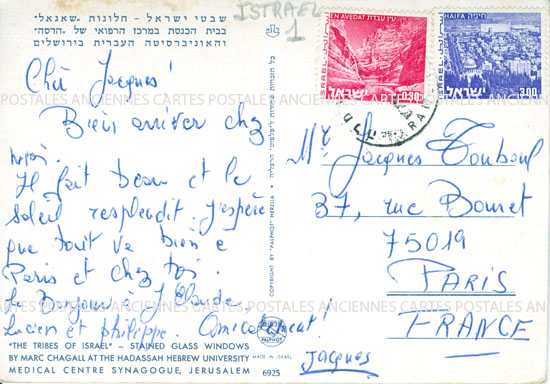 שבטי ישראל - חלונות „שאגאל”
בבית הכנסת במרכז הרפואי של „הדסה”
והאוניברסיטה העברית בירושלים
ISTRAEL
1
Cher Jacques!
Bien arriver chez
moi.
Il fait beau et le
soleil resplendit. J'espère
que tout va bien à
Paris et chez toi.
Le Bonjour à J. Claude,
Lucien et philippe. Amicalement!
Jacques
"THE TRIBES OF ISRAEL" – STAINED GLASS WINDOWS
BY MARC CHAGALL AT THE HADASSAH HEBREW UNIVERSITY
MEDICAL CENTRE SYNAGOGUE, JERUSALEM
6925
MADE IN ISRAEL
PALPHOT
COPYRIGHT BY "PALPHOT" HERZLIA
EN AVEDAT עין עבדת
ISRAEL
ישראל
HAIFA חיפה
ISRAEL
ישראל
3.00
Mr Jacques Touboul
37, rue Bouret
75019
PARIS
FRANCE
POSTALES ANCIENNES CARTES POSTALES ANCIENNES CARTES POSTALES ANCIENNES
POSTALES ANCIENNES CARTES POSTALES ANCIENNES CARTES POSTALES ANCIENNES